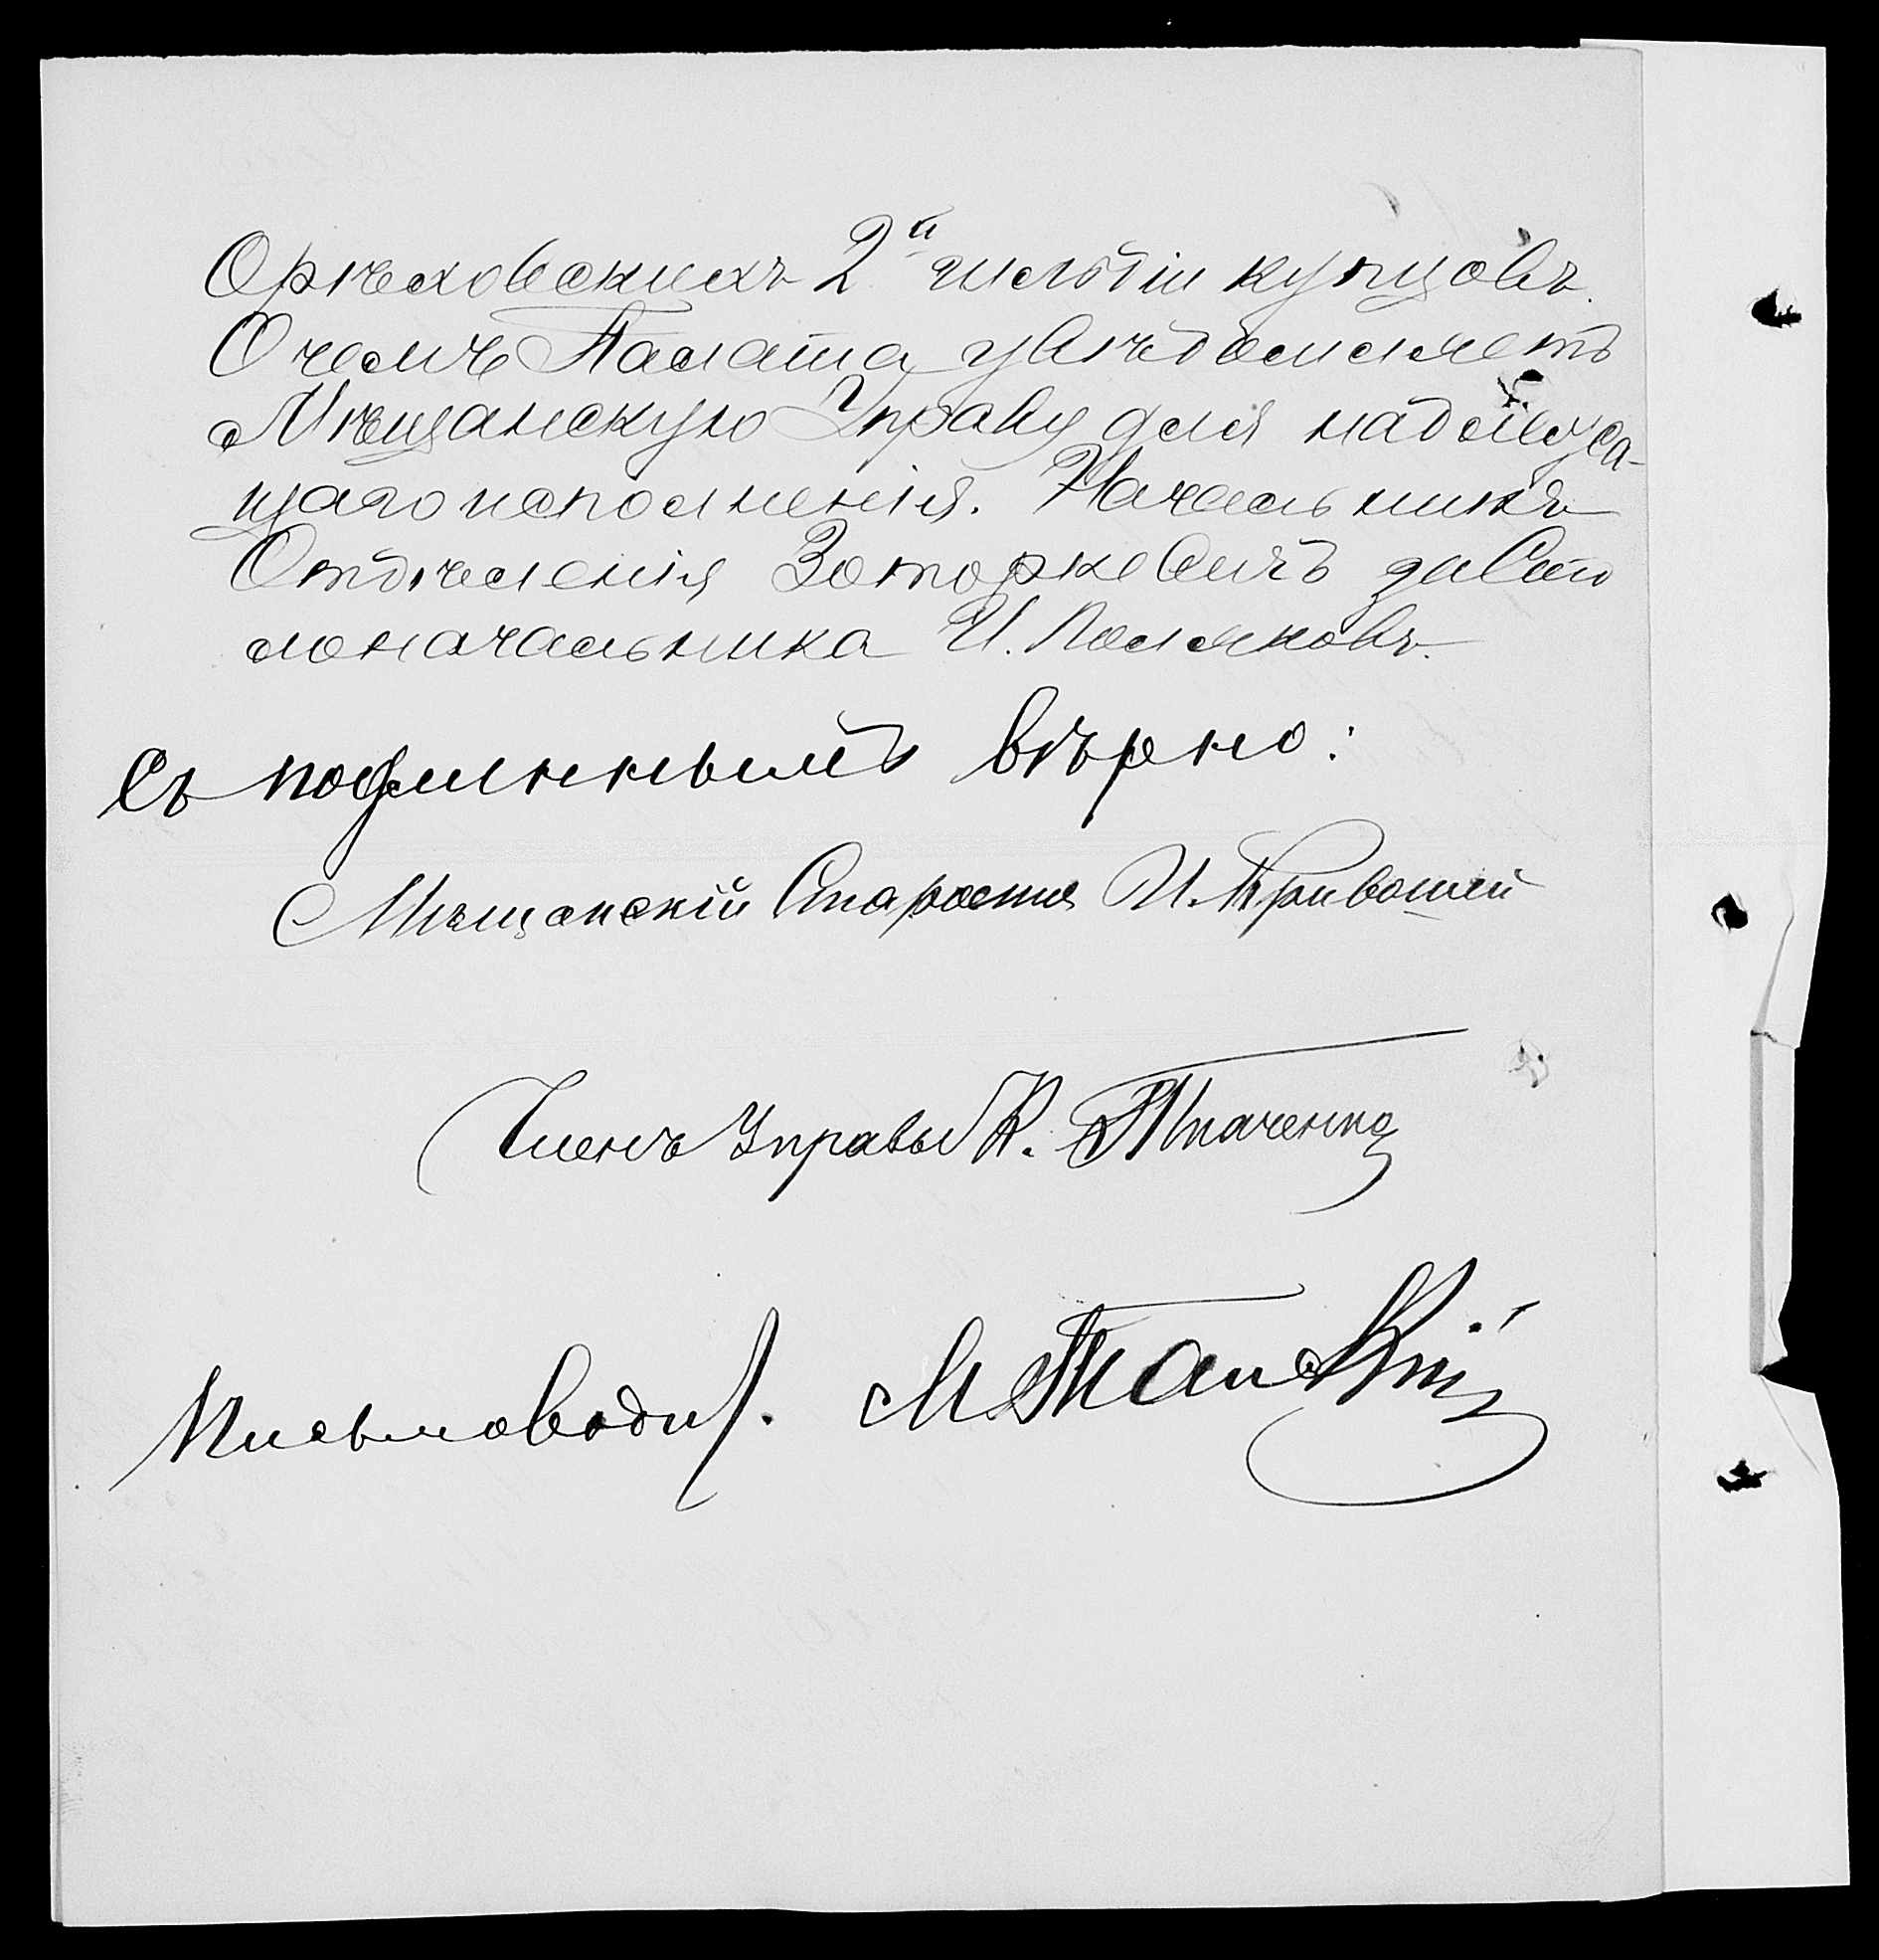 Орѣховскихъ 2й гильдіи купцовъ.
О чемъ Палата увѣдомляетъ
Мѣщанскую Управу для надлежа-
щаго исполненія. Начальникъ
Отдѣленія Заторкевичъ за Сто
лоначальника И. Поляковъ.
Съ подлиннымъ вѣрно:
Мѣщанскій Староста И. Кривошей
Членъ Управы К. Ткаченко
Письмоводит. М.